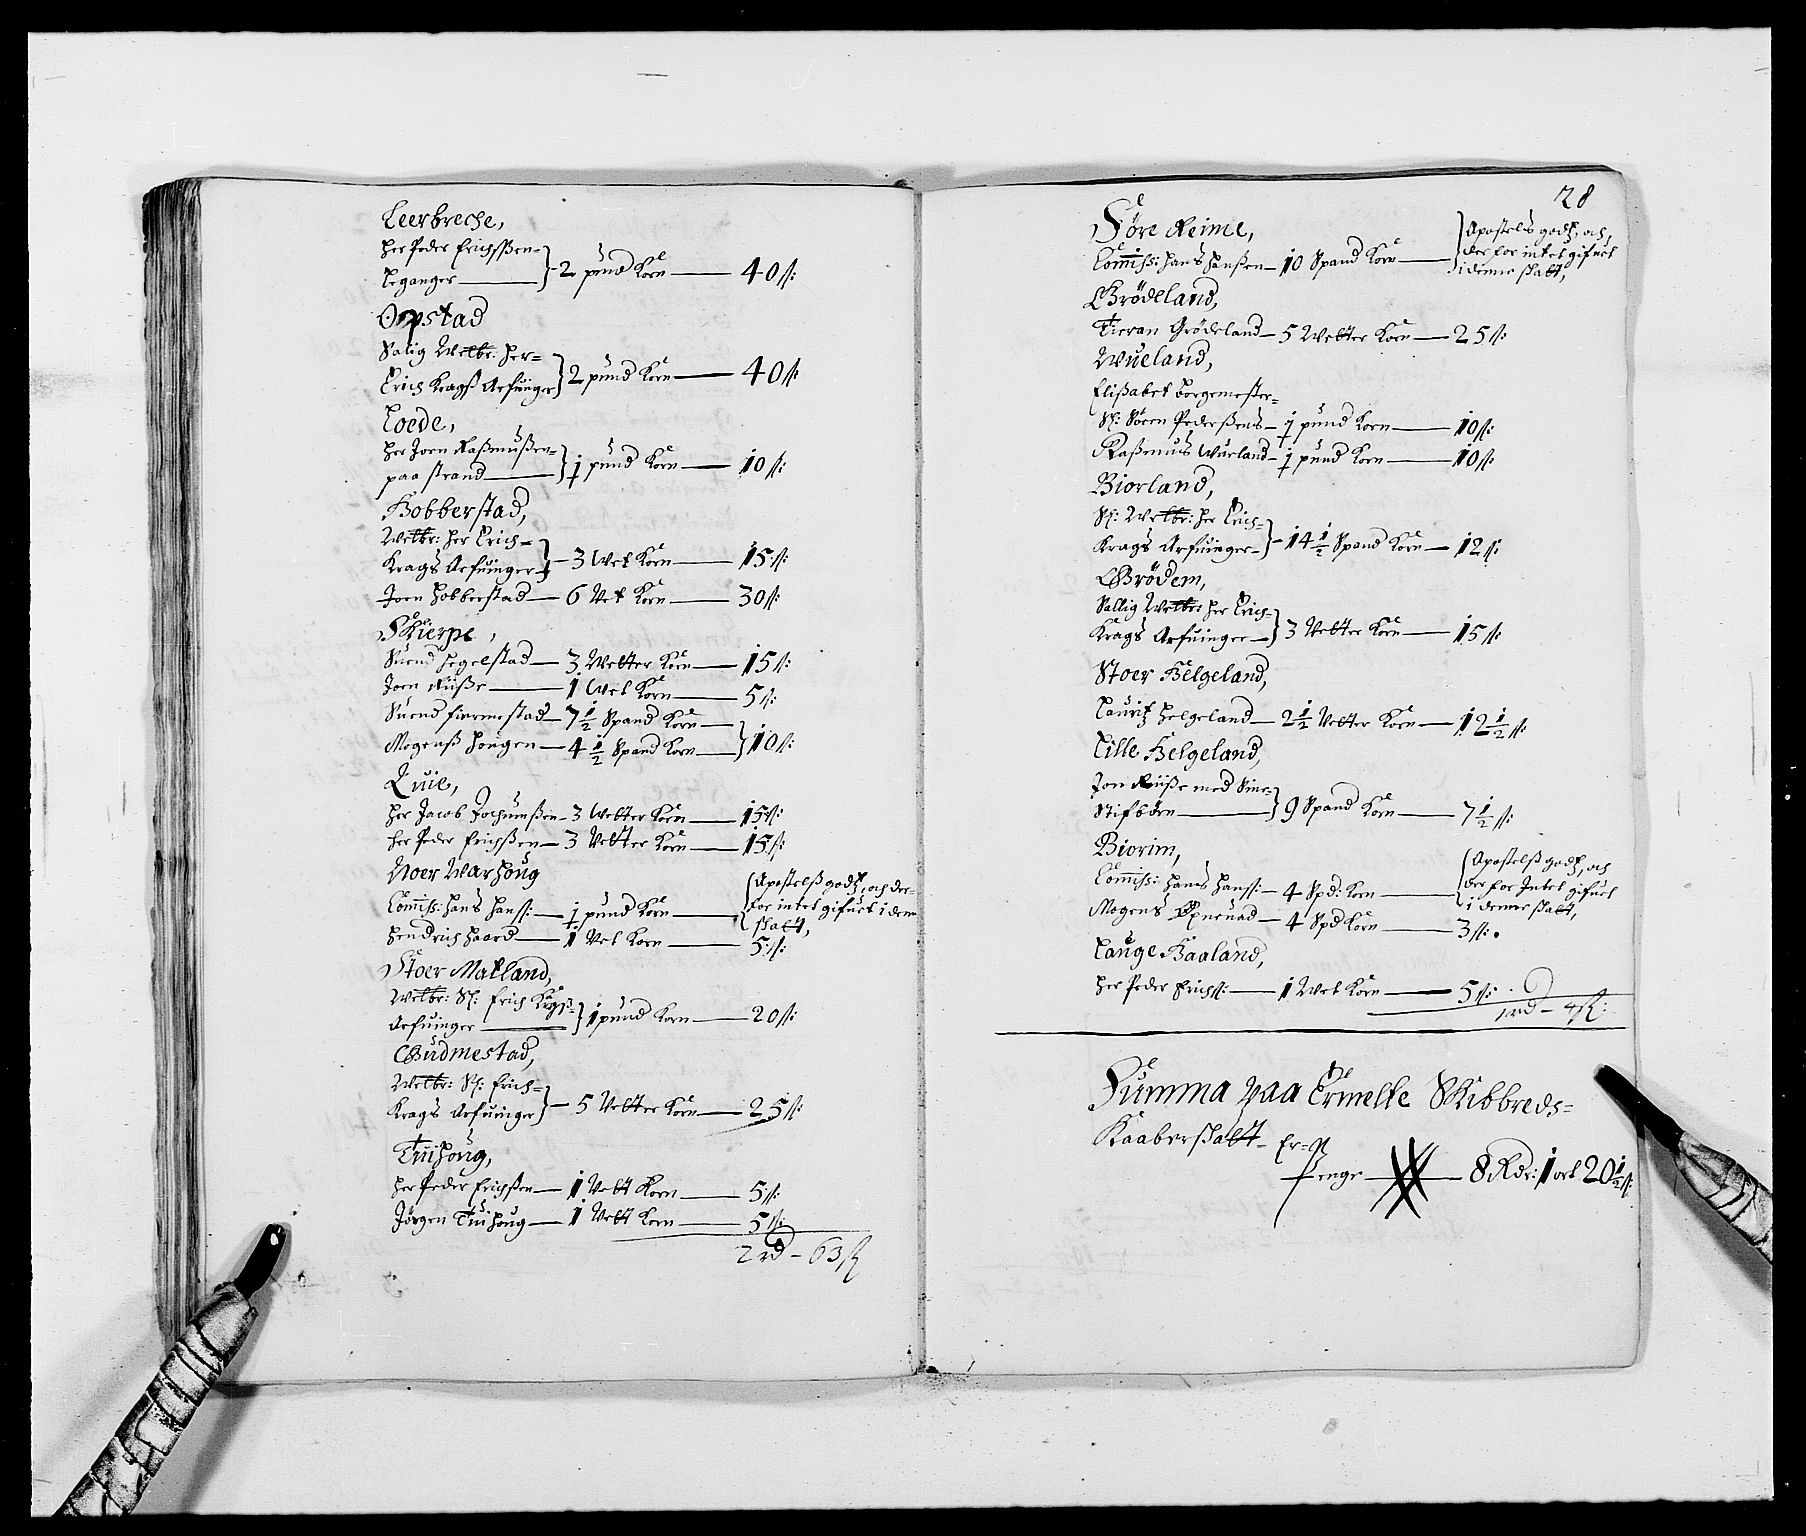 Leerbreche,
Her Peder Erichssen
Leganger } 2 pund Korn — 40 ß:
Opstad
Salig Welbr: Her
Erich Kragß Arfuinger } 2 pund Korn — 40 ß
Loede,
Her Joen Raßmußen
paa strand } 1 pund Korn — 10 ß:
Hobberstad,
Welbr: Her Erich
Krags Arfuinger } 3 Wet Korn — 15 ß:
Joen Hobberstad — 6 Vet Korn — 30 ß:
Skierpe,
Suend Hegelstad — 3 Wetter Korn — 15 ß:
Joen Riiße — 1 Wet Korn — 5 ß:
Suend fiermestad — 7 1/2 Spand Korn —
Mogenß Hougen — 4 1/2 Spand Korn — } 10 ß:
Quie,
Her Jacob Jochumßen — 3 Wetter Korn — 15 ß:
Her Peder Erichßen — 3 Vetter Korn — 15 ß:
Noer Warhoug
Commiss: Hans Hanss: — 1 pund Korn — { Apostelß godß, och der
for intet gifuet i den
skatt,
Hendrich Haard — 1 Vet Korn — 5 ß:
Stoer Matland,
Welbr: Sl: Erich Kragß
Arfuinger } 1 pund Korn — 20 ß:
Gudmestad,
Welbr: Sl: Erich
Krags Arfuinger } 5 Vetter Korn — 25 ß:
Tuihoug,
Her Peder Erichßen — 1 Vett Korn — 5 ß:
Jørgen Tuihoug — 1 Vett Korn — 5 ß:
2 rd — 63 ß
28
Søre Reime,
Commiss: Hans Hanßen — 10 Spand Korn — } Apostels godß, och
der for intet gifuet
i denne skatt,
Grödeland,
Tieran Grödeland — 5 Wetter Korn — 25 ß:
Wueland,
Elißabet Borgemester
Sl: Sören Pederßens — 1 pund Korn — 10 ß:
Raßmus Wueland — 1 pund Korn — 10 ß:
Biorland,
Sl: Welbr: Her Erich
Krags Arfuinger } 14 1/2 Spand Korn — 12 ß:
Grödem,
Sallig Welbr: Her Erich
Krags Arfuinger } 3 Vetter Korn — 15 ß:
Stoer Helgeland,
Lauritz Helgeland — 2 1/2 Vetter Korn — 12 1/2 ß:
Lille Helgeland,
Jon Riiße med Sine
Stifbörn } 9 Spand Korn — 7 1/2 ß:
Biorim,
Commiss: Hans Hanss: — 4 Spd: Korn — { Apostelß godß, och
der for Intet gifuet
i denne skatt,
Mogens — 4 Spd Korn — 3 ß:
Lauge Haaland,
Her Peder Erichs: — 1 Wet Korn — 5 ß:
1 rd — 4 ß:
Summa paa Ermelte Skibbreds
Kaaberskatt Er
Penge — 8 Rdr: 1 ort 20 1/2 ß: